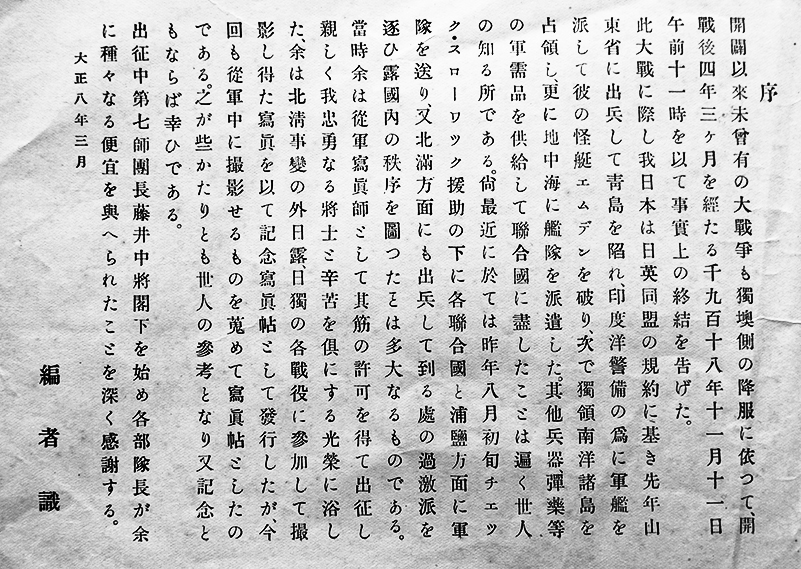 序
開闢以來未曾有の大戰爭も獨墺側の降服に依つて、開
戰後四年三ヶ月を經たる千九百十八年十一月十一日
午前十一時を以て事實上の終結を告げた。
此大戰に際し我日本は日英同盟の規約に基き先年山
東省に出兵して靑島を陷れ、印度洋警備の爲に軍艦を
派して彼の怪艇エムデンを破り、次で獨領南洋諸島を
占領し、更に地中海に艦隊を派遣した。其他兵器彈藥等
の軍需品を供給して聯合國に盡したことは遍く世人
の知る所である。尙最近に於ては昨年八月初旬チエッ
ク・スローワック援助の下に各聯合國と浦鹽方面に軍
隊を送り、又北滿方面にも出兵して到る處の過激派を
逐ひ露國內の秩序を圖つたとは多大なるものである。
當時余は從軍寫眞師として其筋の許可を得て出征し
親しく我忠勇なる將士と辛苦を俱にする光榮に浴し
た、余は北淸事變の外日露、日獨の各戰役に參加して撮
影し得た寫眞を以て記念寫眞帖として發行したが、今
回も從軍中に撮影せるものを蒐めて寫眞帖としたの
である。之が些かたりとも世人の參考となり又記念と
もならば幸ひである。
出征中第七師團長藤井中將閣下を始め各部隊長が余
に種々なる便宜を與へられたことを深く感謝する。
大正八年三月
編者識